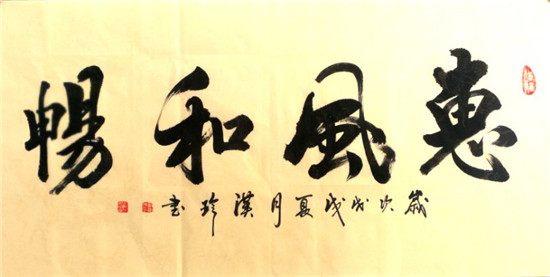 惠風和暢
歲次戊戌夏月漢珍書